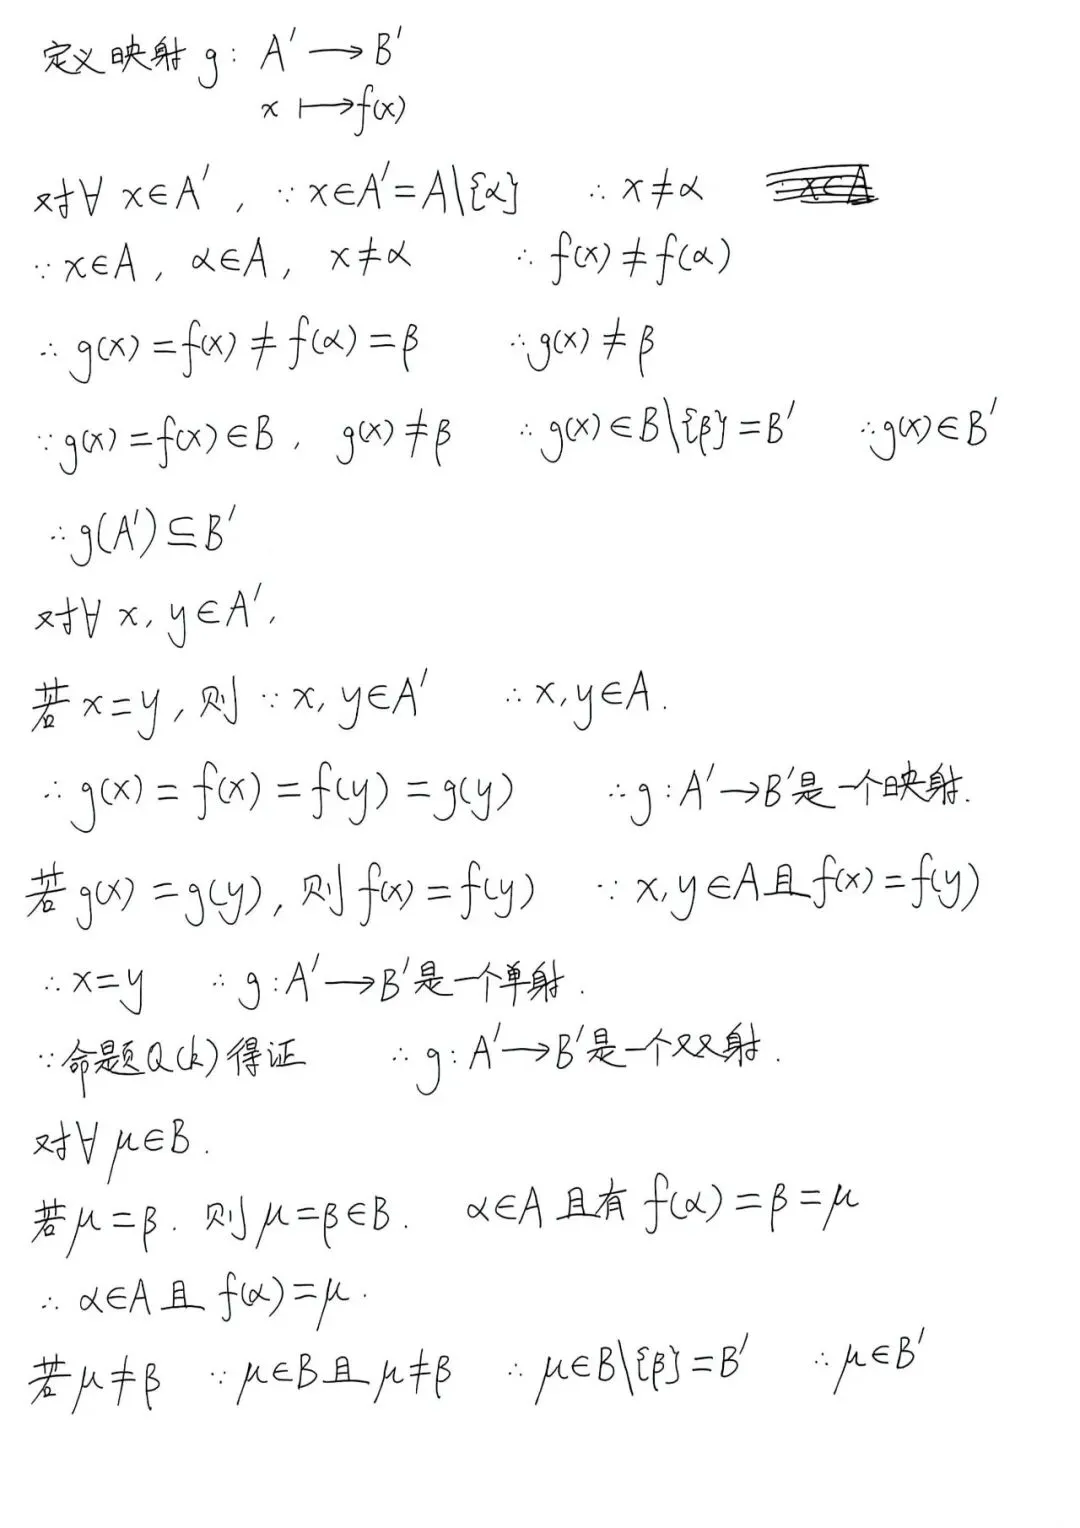 定义映射 g: A′ ⟶ B′
x ⟼ f(x)
对∀ x∈A′, ∵ x∈A′=A\{α} ∴ x≠α
∵ x∈A, α∈A, x≠α ∴ f(x)≠f(α)
∴ g(x)=f(x)≠f(α)=β ∴ g(x)≠β
∵ g(x)=f(x)∈B, g(x)≠β ∴ g(x)∈B\{β}=B′ ∴ g(x)∈B′
∴ g(A′)⊆B′
对∀ x, y∈A′,
若 x=y, 则 ∵ x, y∈A′ ∴ x, y∈A.
∴ g(x)=f(x)=f(y)=g(y) ∴ g: A′→B′是一个映射.
若 g(x)=g(y), 则 f(x)=f(y) ∵ x, y∈A且f(x)=f(y)
∴ x=y ∴ g: A′⟶B′是一个单射.
∵ 命题Q(k)得证 ∴ g: A′⟶B′是一个双射.
对∀ μ∈B.
若 μ=β. 则 μ=β∈B. α∈A 且有 f(α)=β=μ
∴ α∈A 且 f(α)=μ.
若 μ≠β ∵ μ∈B且μ≠β ∴ μ∈B\{β}=B′ ∴ μ∈B′